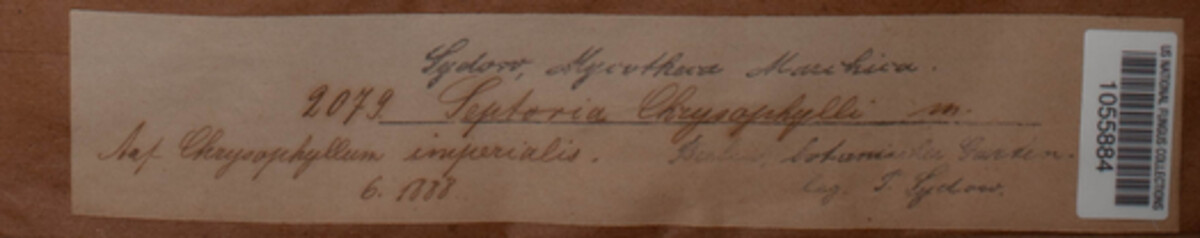 Sydow, Mycotheca Marchica.
2079. Septoria Chrysophylli m.
Auf Chrysophyllum imperialis. Berlin, botanischer Garten.
6. 1888 leg. P. Sydow.
US NATIONAL FUNGUS COLLECTIONS
1055884